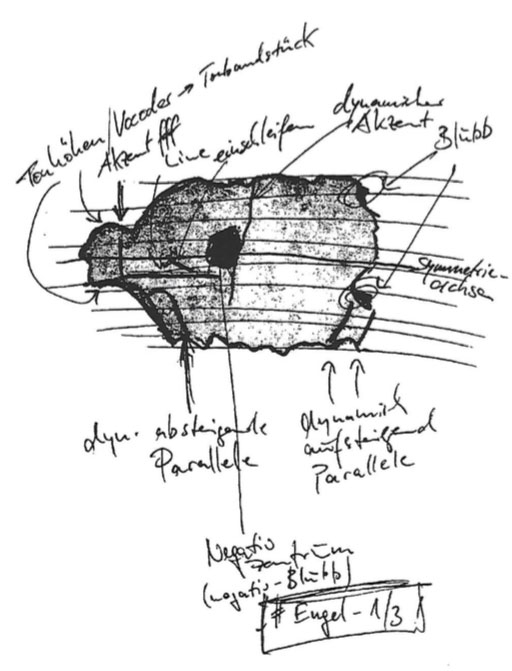 Tonhöhen/Vocoder → Tonbandstück
Akzent fff
Line einschleifen
dynamischer
Akzent
Blübb
Symmetrie-
achse
dyn. absteigende
Parallele
dynamisch
aufsteigend
Parallele
Negativ
zentrum
(negativ-Blübb)
# Engel - 1/3